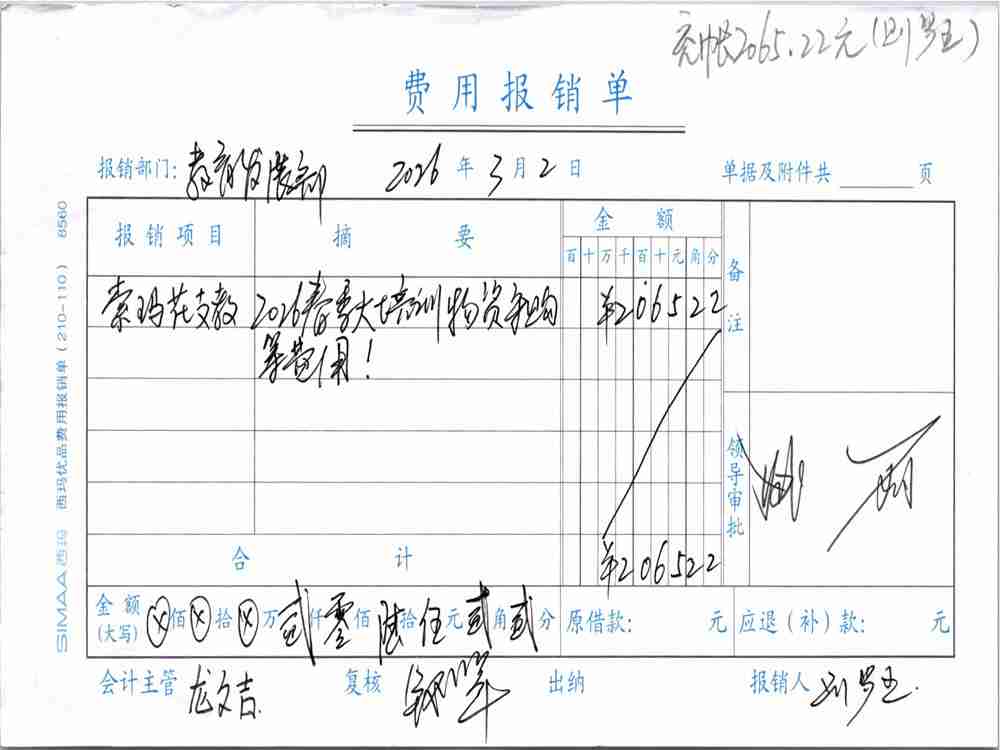 充帐2065.22元(刘罗玉)
费用报销单
报销部门: 教育发展部 2026 年 3 月 2 日 单据及附件共 页
报销项目 摘要 金额 备注
百 十 万 千 百 十 元 角 分
索玛花支教 2026春季大培训物资采购 ¥206522
等费用!
领导审批
合计 ¥206522
金额(大写) ⊗佰⊗拾⊗万贰仟零佰陆拾伍元贰角贰分 原借款: 元 应退(补)款: 元
会计主管 龙文吉. 复核 出纳 报销人 刘罗玉.
SIMAA 西玛 西玛优品费用报销单(210-110) 8560